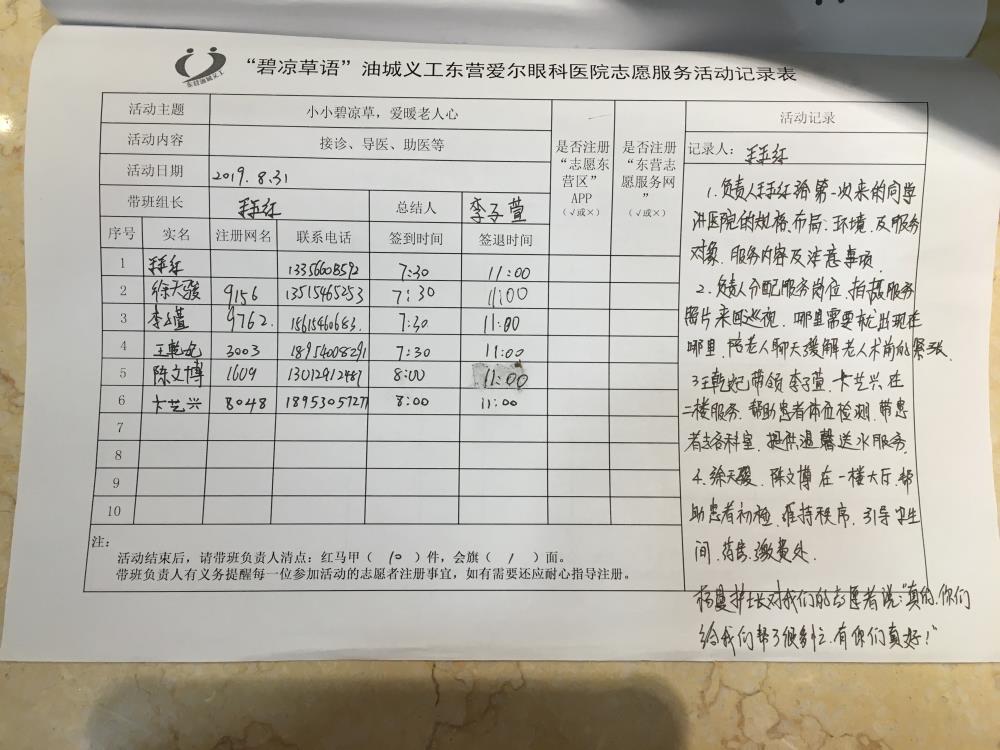 东营油城义工
“碧凉草语”油城义工东营爱尔眼科医院志愿服务活动记录表
活动主题 小小碧凉草，爱暖老人心
活动内容 接诊、导医、助医等
活动日期 2019.8.31
带班组长 总结人 李子萱
序号 实名 注册网名 联系电话 签到时间 签退时间
是否注册
“志愿东
营区”
APP
（√或×）
是否注册
“东营志
愿服务网
”
（√或×）
1 13356608592 7:30 11:00
2 徐天骏 9156 13515465253 7:30 11:00
3 李子萱 9762. 15615460683. 7:30 11:00
4 王乾妃 3003 18954008291 7:30 11:00
5 陈文博 1609 13012912487 8:00 11:00
6 卞艺兴 8048 18953057277 8:00 11:00
7
8
9
10
注：
活动结束后，请带班负责人清点：红马甲（ 10 ）件，会旗（ 1 ）面。
带班负责人有义务提醒每一位参加活动的志愿者注册事宜，如有需要还应耐心指导注册。
活动记录
记录人：
1.负责人 给第一次来的同学
讲医院的规格、布局、环境、及服务
对象、服务内容及注意事项.
2.负责人分配服务岗位、拍摄服务
照片来回巡视.哪里需要就出现在
哪里.陪老人聊天缓解老人术前的紧张.
3王乾妃带领李子萱.卞艺兴在
二楼服务.帮助患者体位检测.带患
者去各科室.提供温馨送水服务.
4.徐天骏.陈文博在一楼大厅.帮
助患者初检.维持秩序.引导卫生
间.药房.缴费处.
杨曼护士长对我们的志愿者说:“真的.你们
给我们帮了很多忙.有你们真好！”